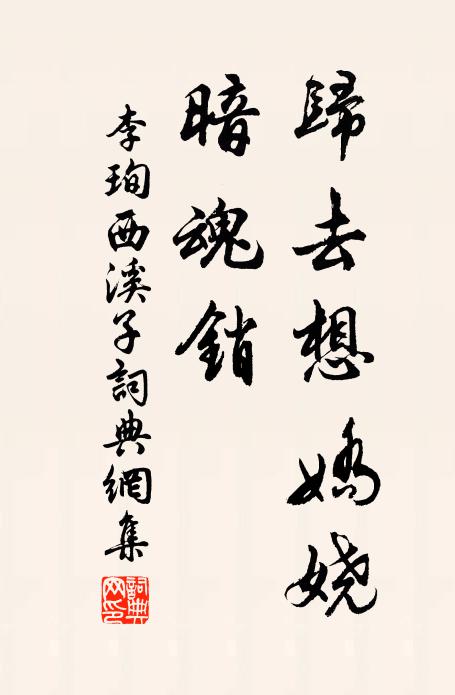 歸去想嬌嬈
暗魂銷
李珣西溪子詞典網集
詞典網印